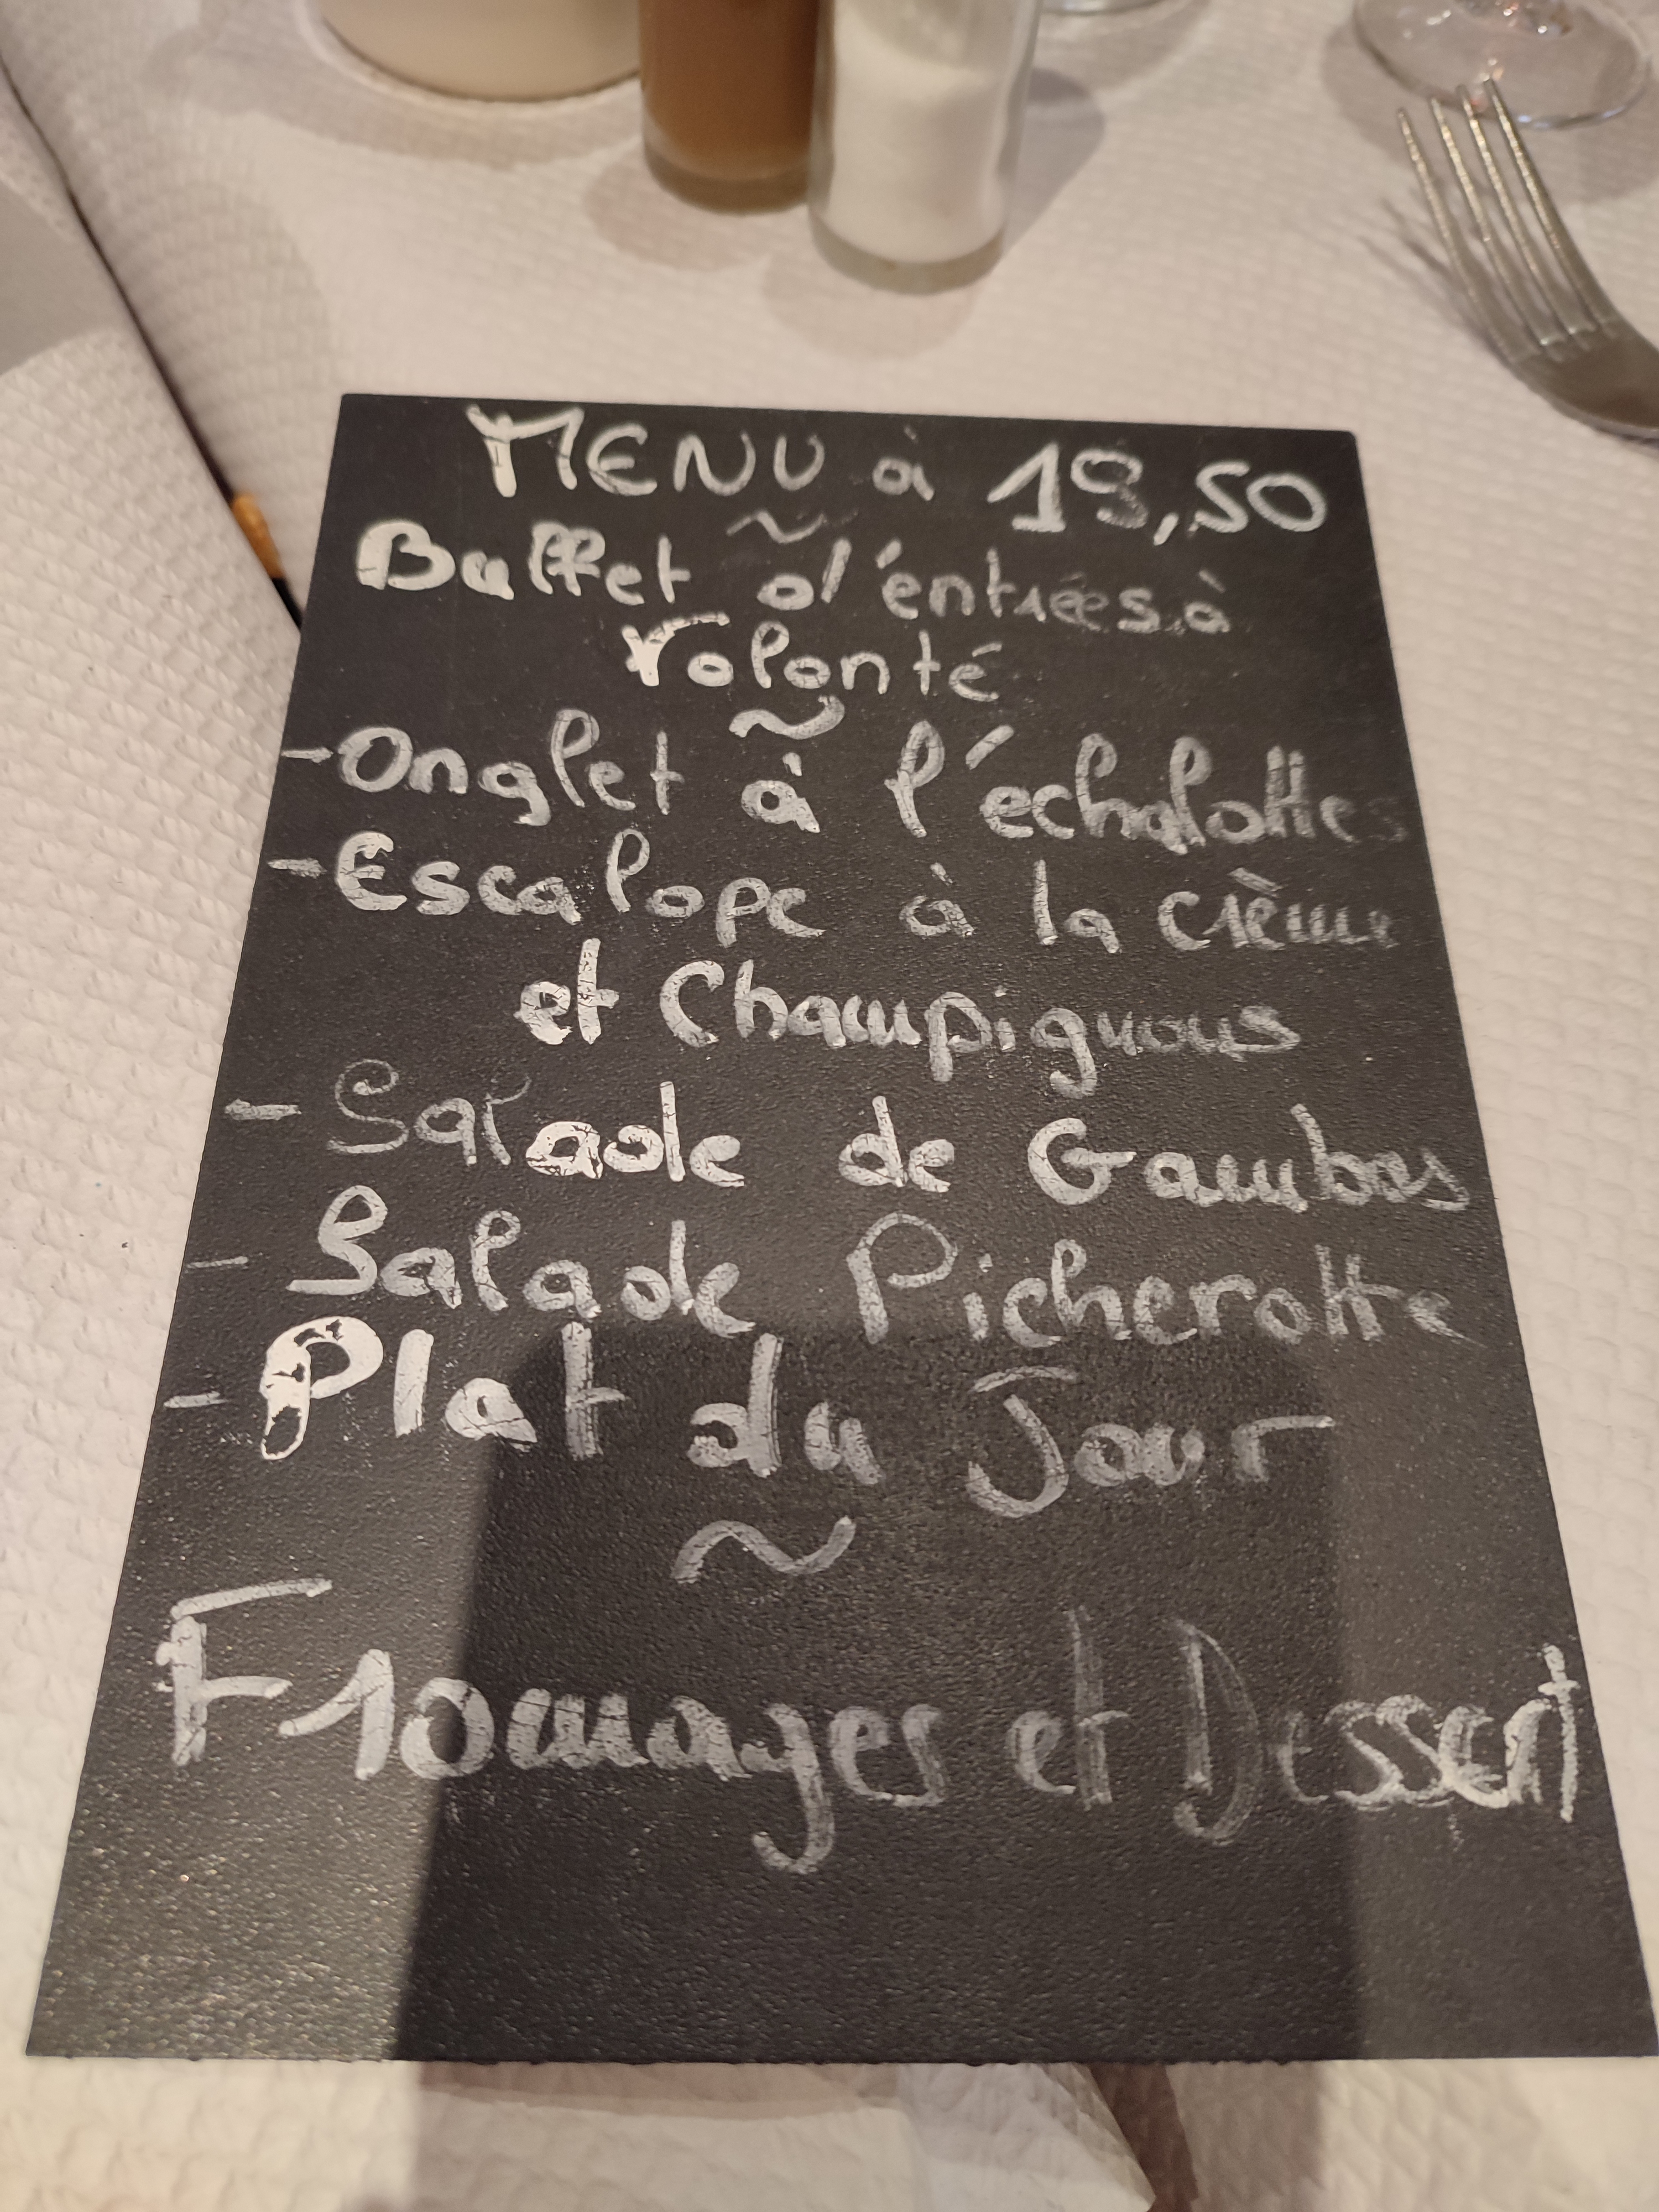 MENU à 19,50
~
Buffet d'éntrées à
volonté
~
-Onglet à l'échalottes
-Escalope à la crème
et Champignons
- Salade de Gambas
- Salade Picherotte
- Plat du Jour
~
Fromages et Dessert